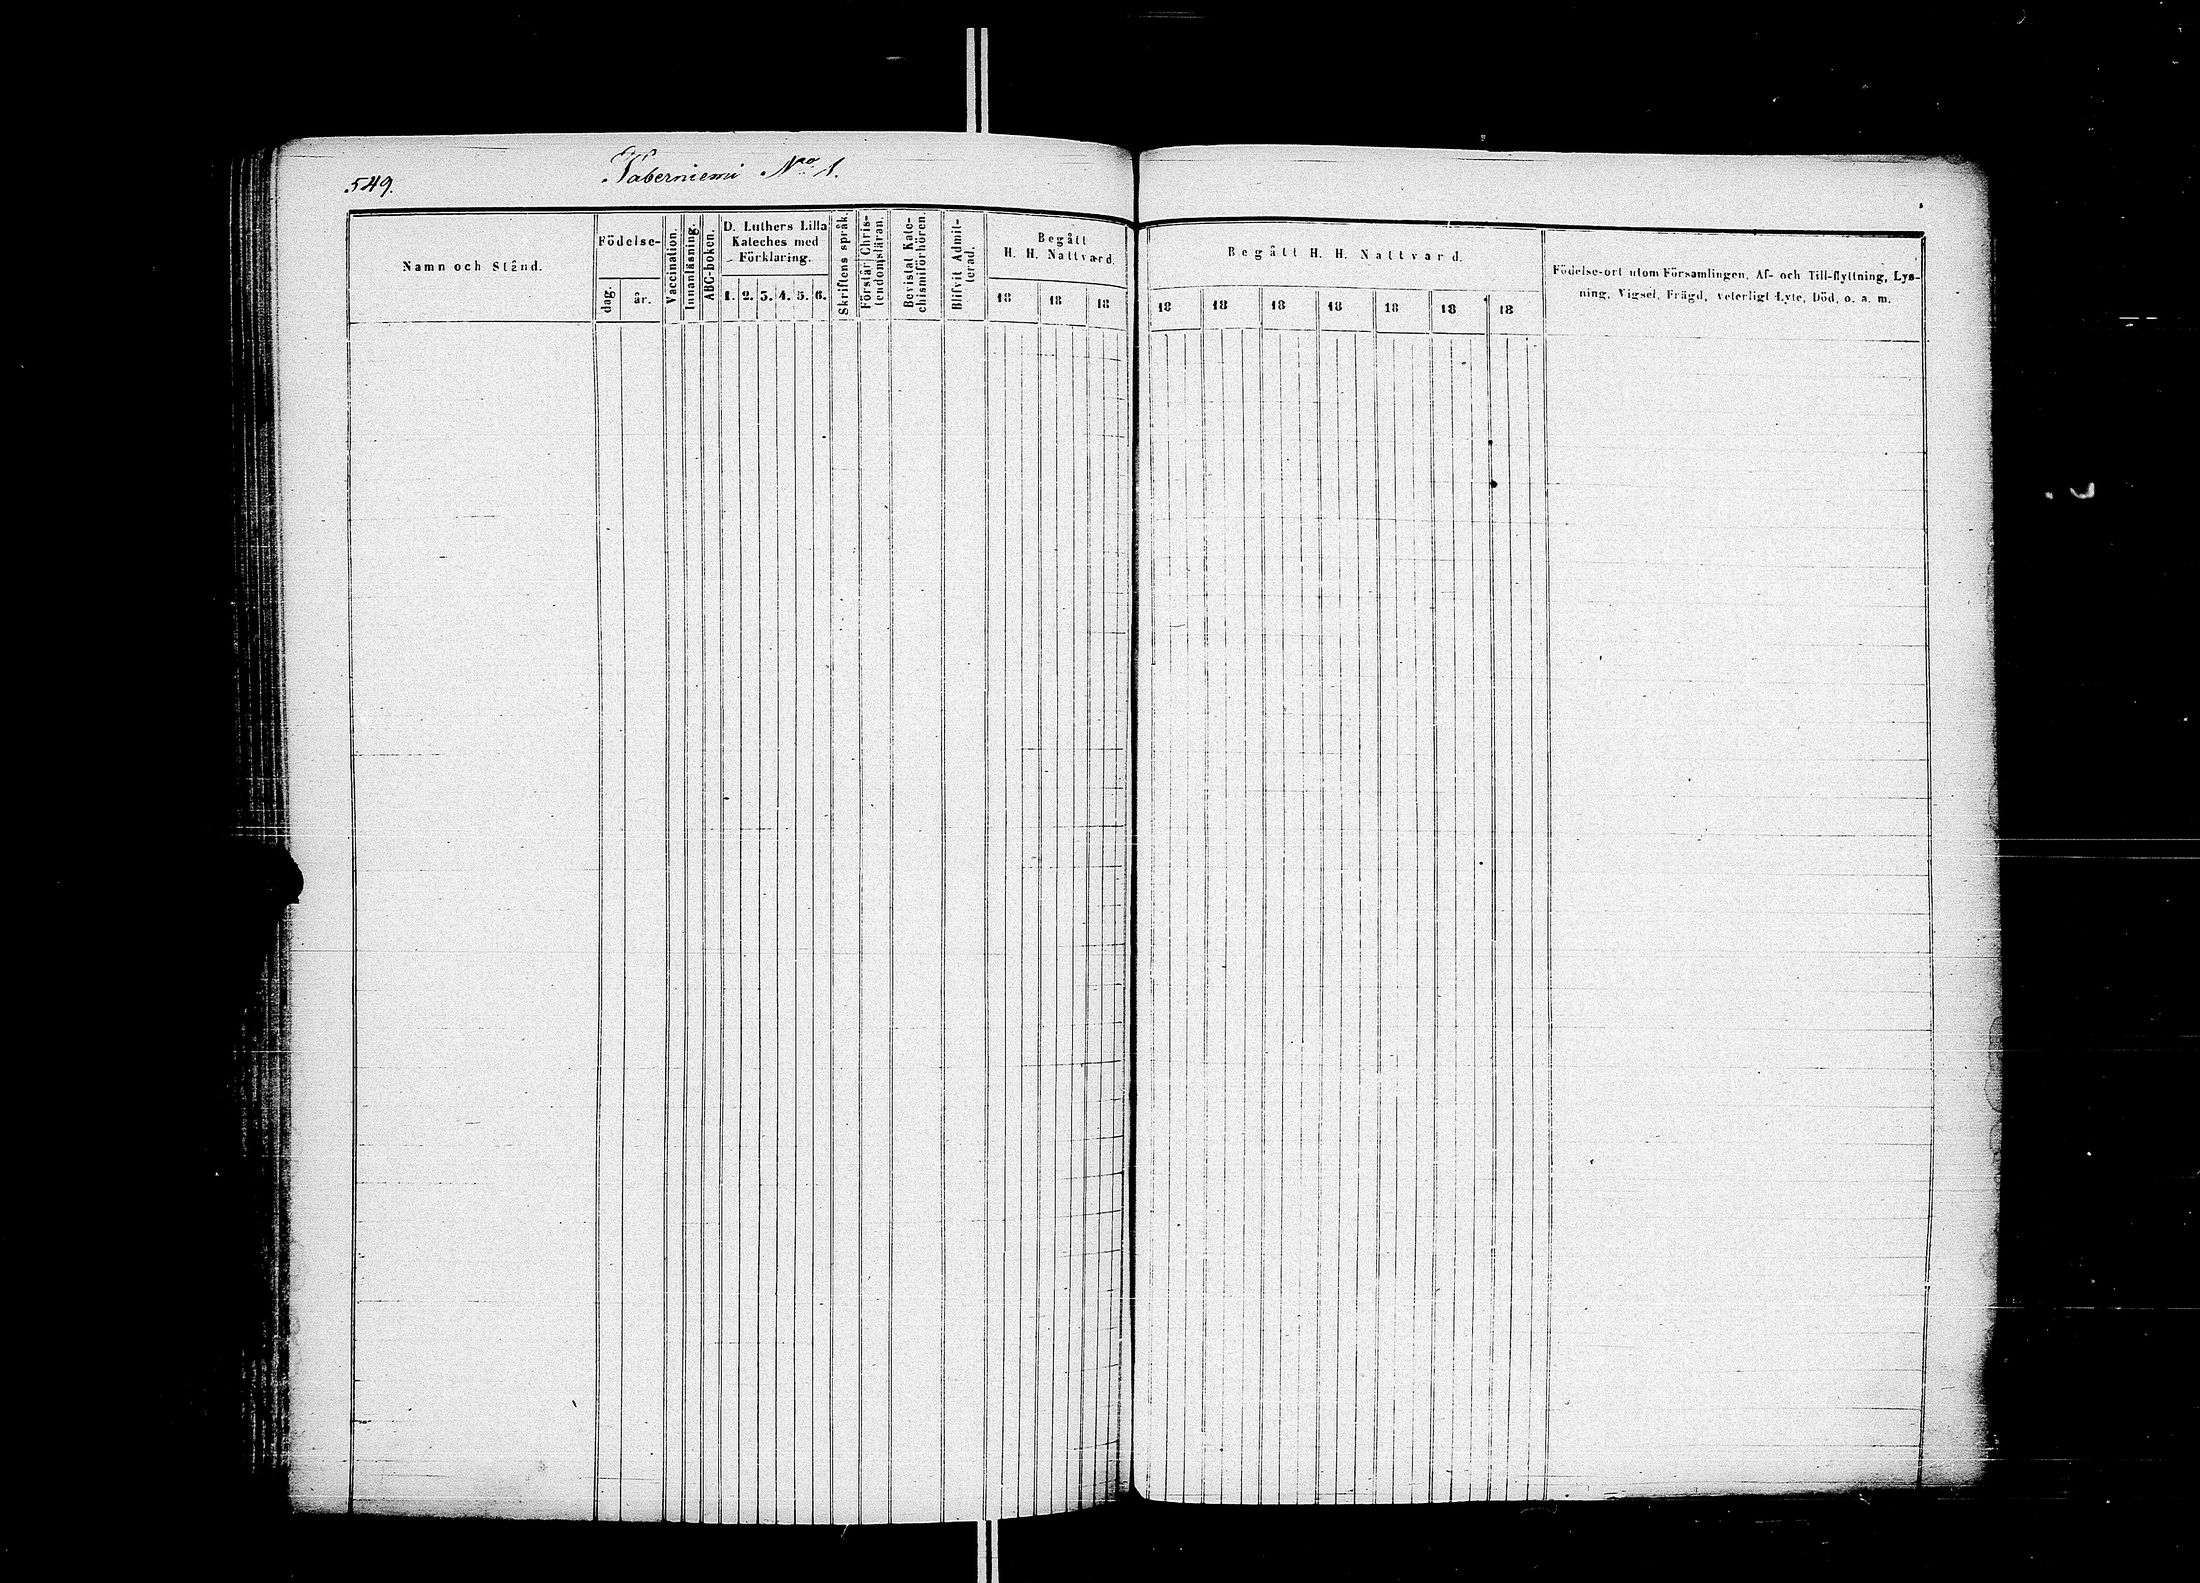 549.
Taberniemi Nro 1.
Namn och Stånd.
Födelse-
dag.
år.
Vaccination.
Innanläsning.
ABC-boken.
D. Luthers Lilla
Kateches med
Förklaring.
1. 2. 3. 4. 5. 6.
Skriftens språk.
Förstår Chris-
tendomsläran.
Bevistat Kate-
chismiförhören.
Blifvit Admit-
terad.
Begått
H. H. Nattvard.
18 18 18
Begått H. H. Nattvard.
18 18 18 18 18 18 18
Födelse-ort utom Församlingen, Af- och Till-flyttning, Lys-
ning, Vigsel, Frägd, veterligt Lyte, Död, o. a. m.